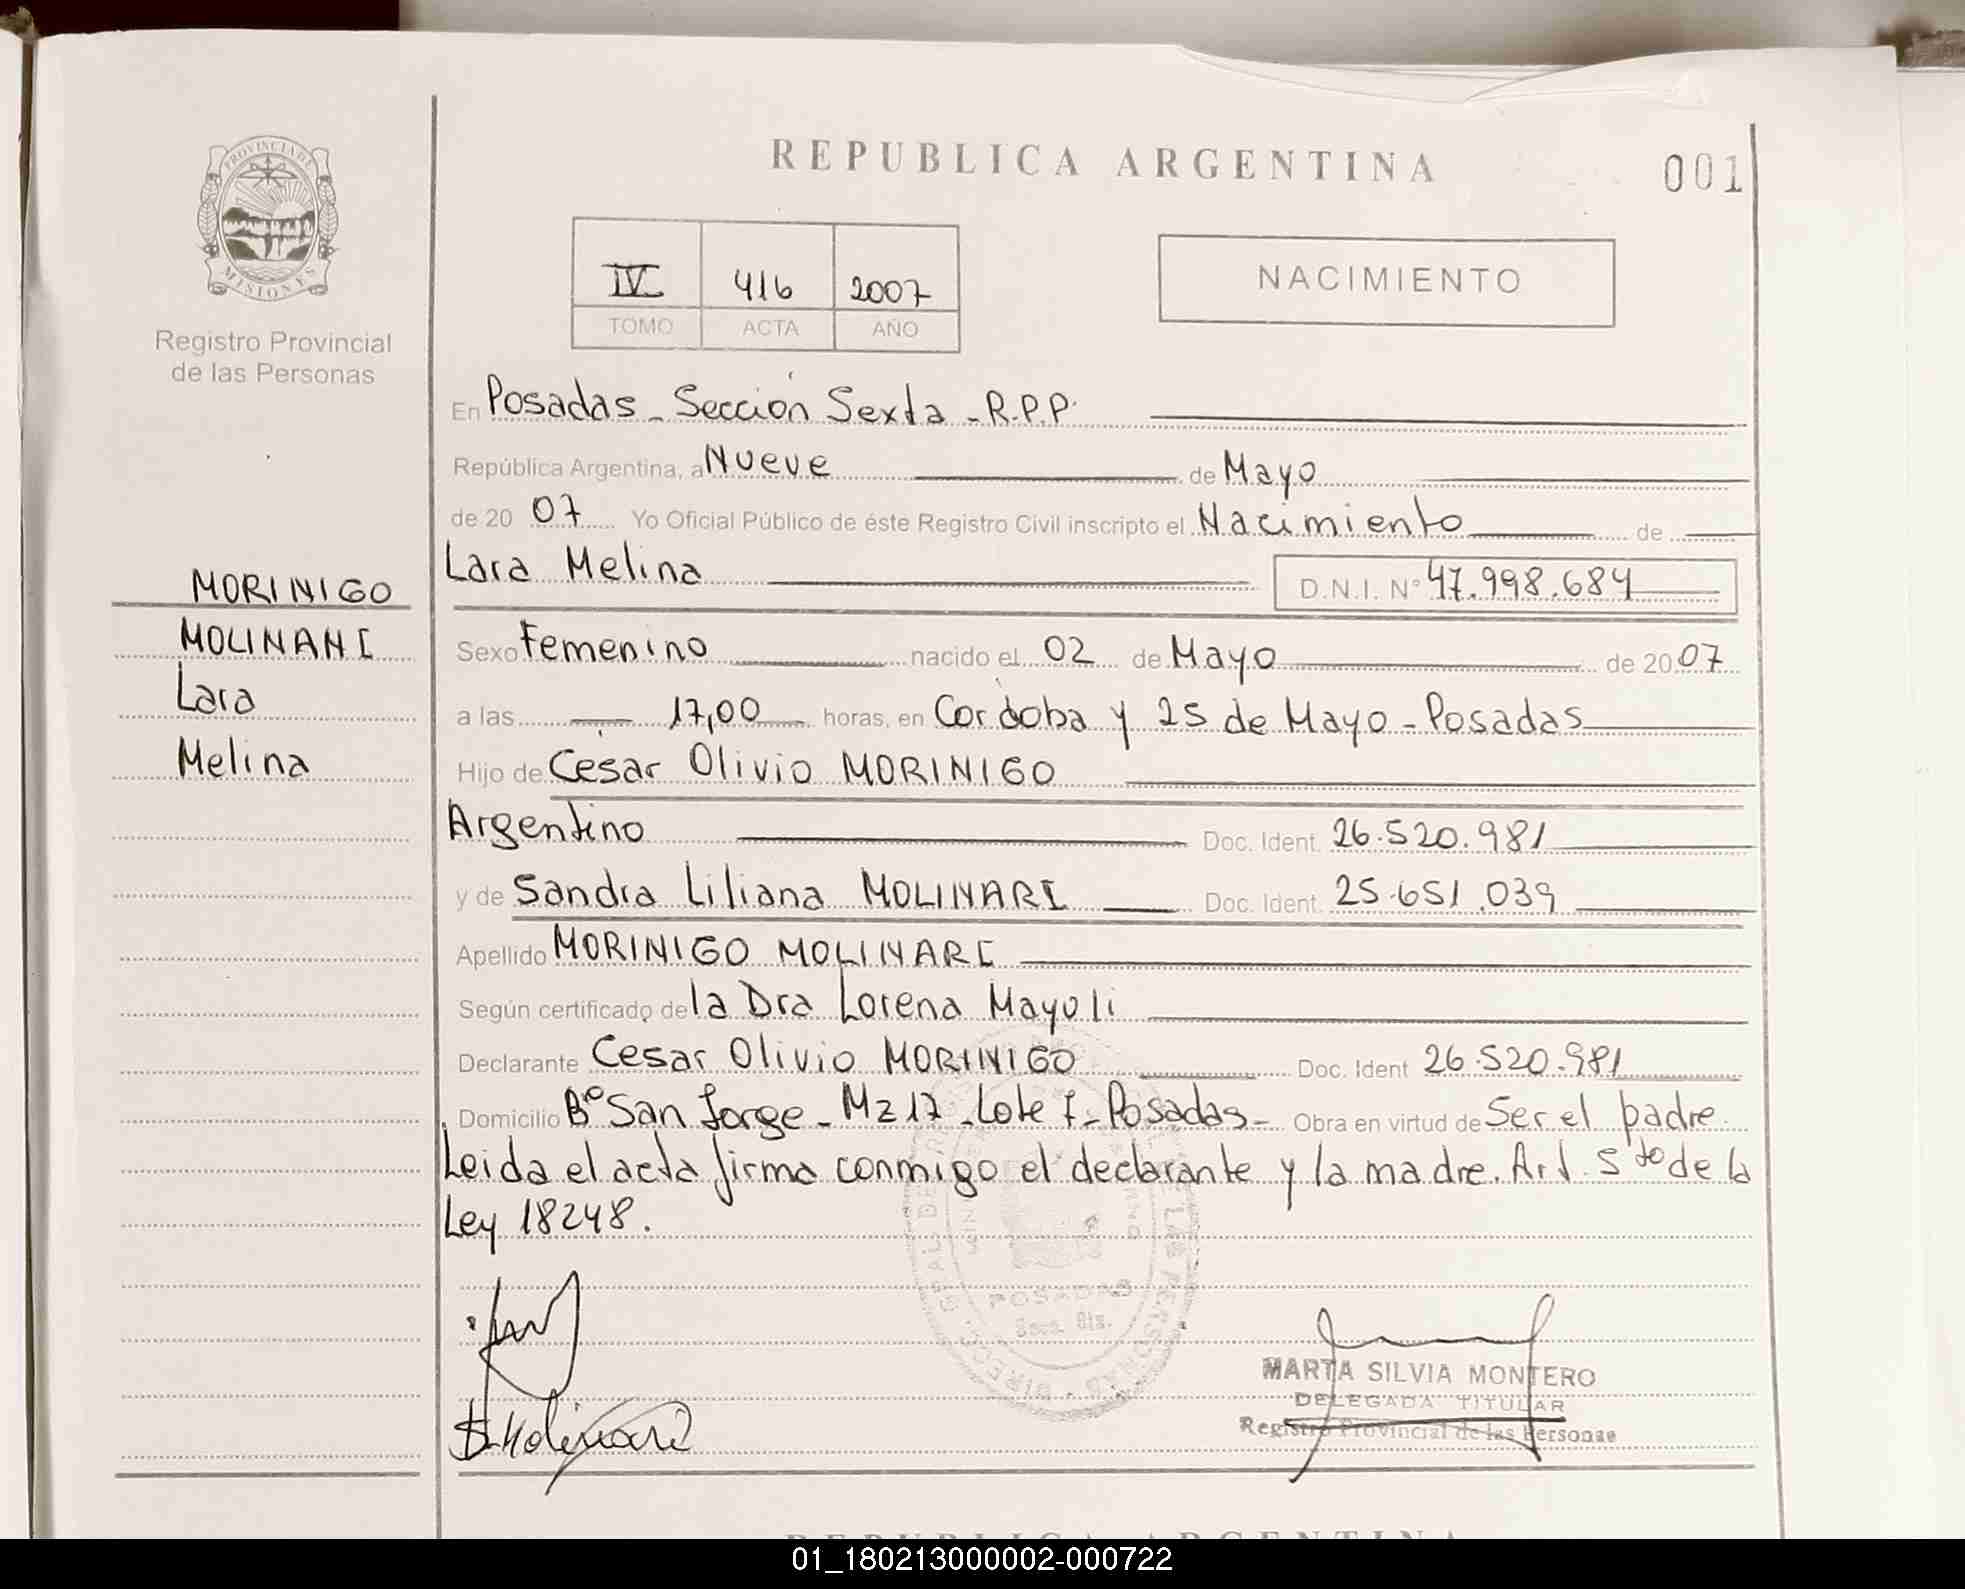 REPUBLICA ARGENTINA
001
PROVINCIA DE
MISIONES
Registro Provincial
de las Personas
IV 416 2007
TOMO ACTA AÑO
NACIMIENTO
En Posadas - Sección Sexta - R.P.P.
República Argentina, a Nueve de Mayo
de 20 07 Yo Oficial Público de éste Registro Civil inscripto el Nacimiento de
Lara Melina D.N.I. Nº 47.998.684
MORINIGO
MOLINARI
Lara
Melina
Sexo Femenino nacido el 02 de Mayo de 20 07
a las 17,00 horas, en Cordoba y 25 de Mayo - Posadas
Hijo de César Olivio MORINIGO
Argentino Doc. Ident. 26.520.981
y de Sandra Liliana MOLINARI Doc. Ident. 25.651.039
Apellido MORINIGO MOLINARI
Según certificado de la Dra Lorena Mayoli
Declarante Cesar Olivio MORINIGO Doc. Ident 26.520.981
Domicilio Bº San Jorge - Mz 17 - Lote 7 - Posadas - Obra en virtud de Ser el padre.
Leida el acta firma conmigo el declarante y la madre. Art. 5to de la
Ley 18248.
POSADAS
S. Molinari
MARTA SILVIA MONTERO
DELEGADA TITULAR
Registro Provincial de las Personas
REPUBLICA ARGENTINA
01_180213000002-000722